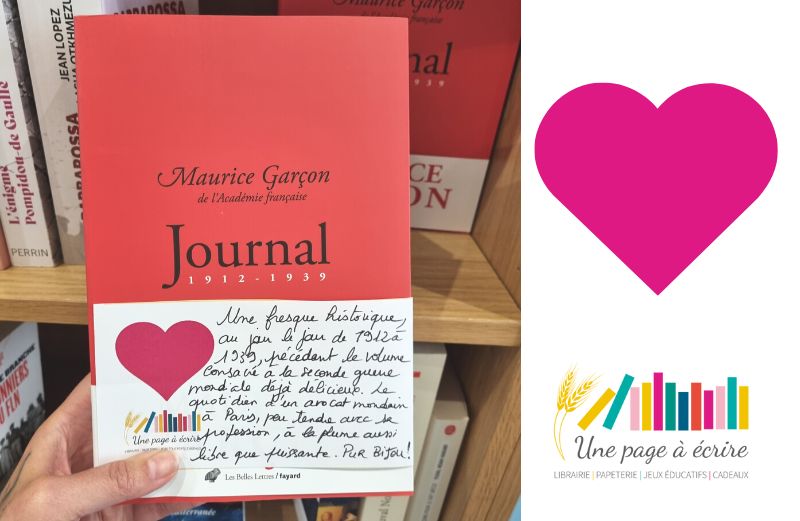 L'énigme
Pompidou-de Gaulle
PERRIN
JEAN LOPEZ
BARBAROSSA
Maurice Garçon
de l'Académie française
Journal
1912-1939
Une fresque historique,
au jour le jour de 1912 à
1939, précédant le volume
consacré à la seconde guerre
mondiale déjà délicieux. Le
quotidien d'un avocat mondain
à Paris, peu tendre avec sa
profession, à la plume aussi
libre que puissante. Pur Bijou!
Une page à écrire
Les Belles Lettres / fayard
Maurice Garçon
de l'Académie française
nal
939
CE
ON
BRANCHE
ONNIERS
DU FLN
Une page à écrire
LIBRAIRIE | PAPETERIE | JEUX ÉDUCATIFS | CADEAUX